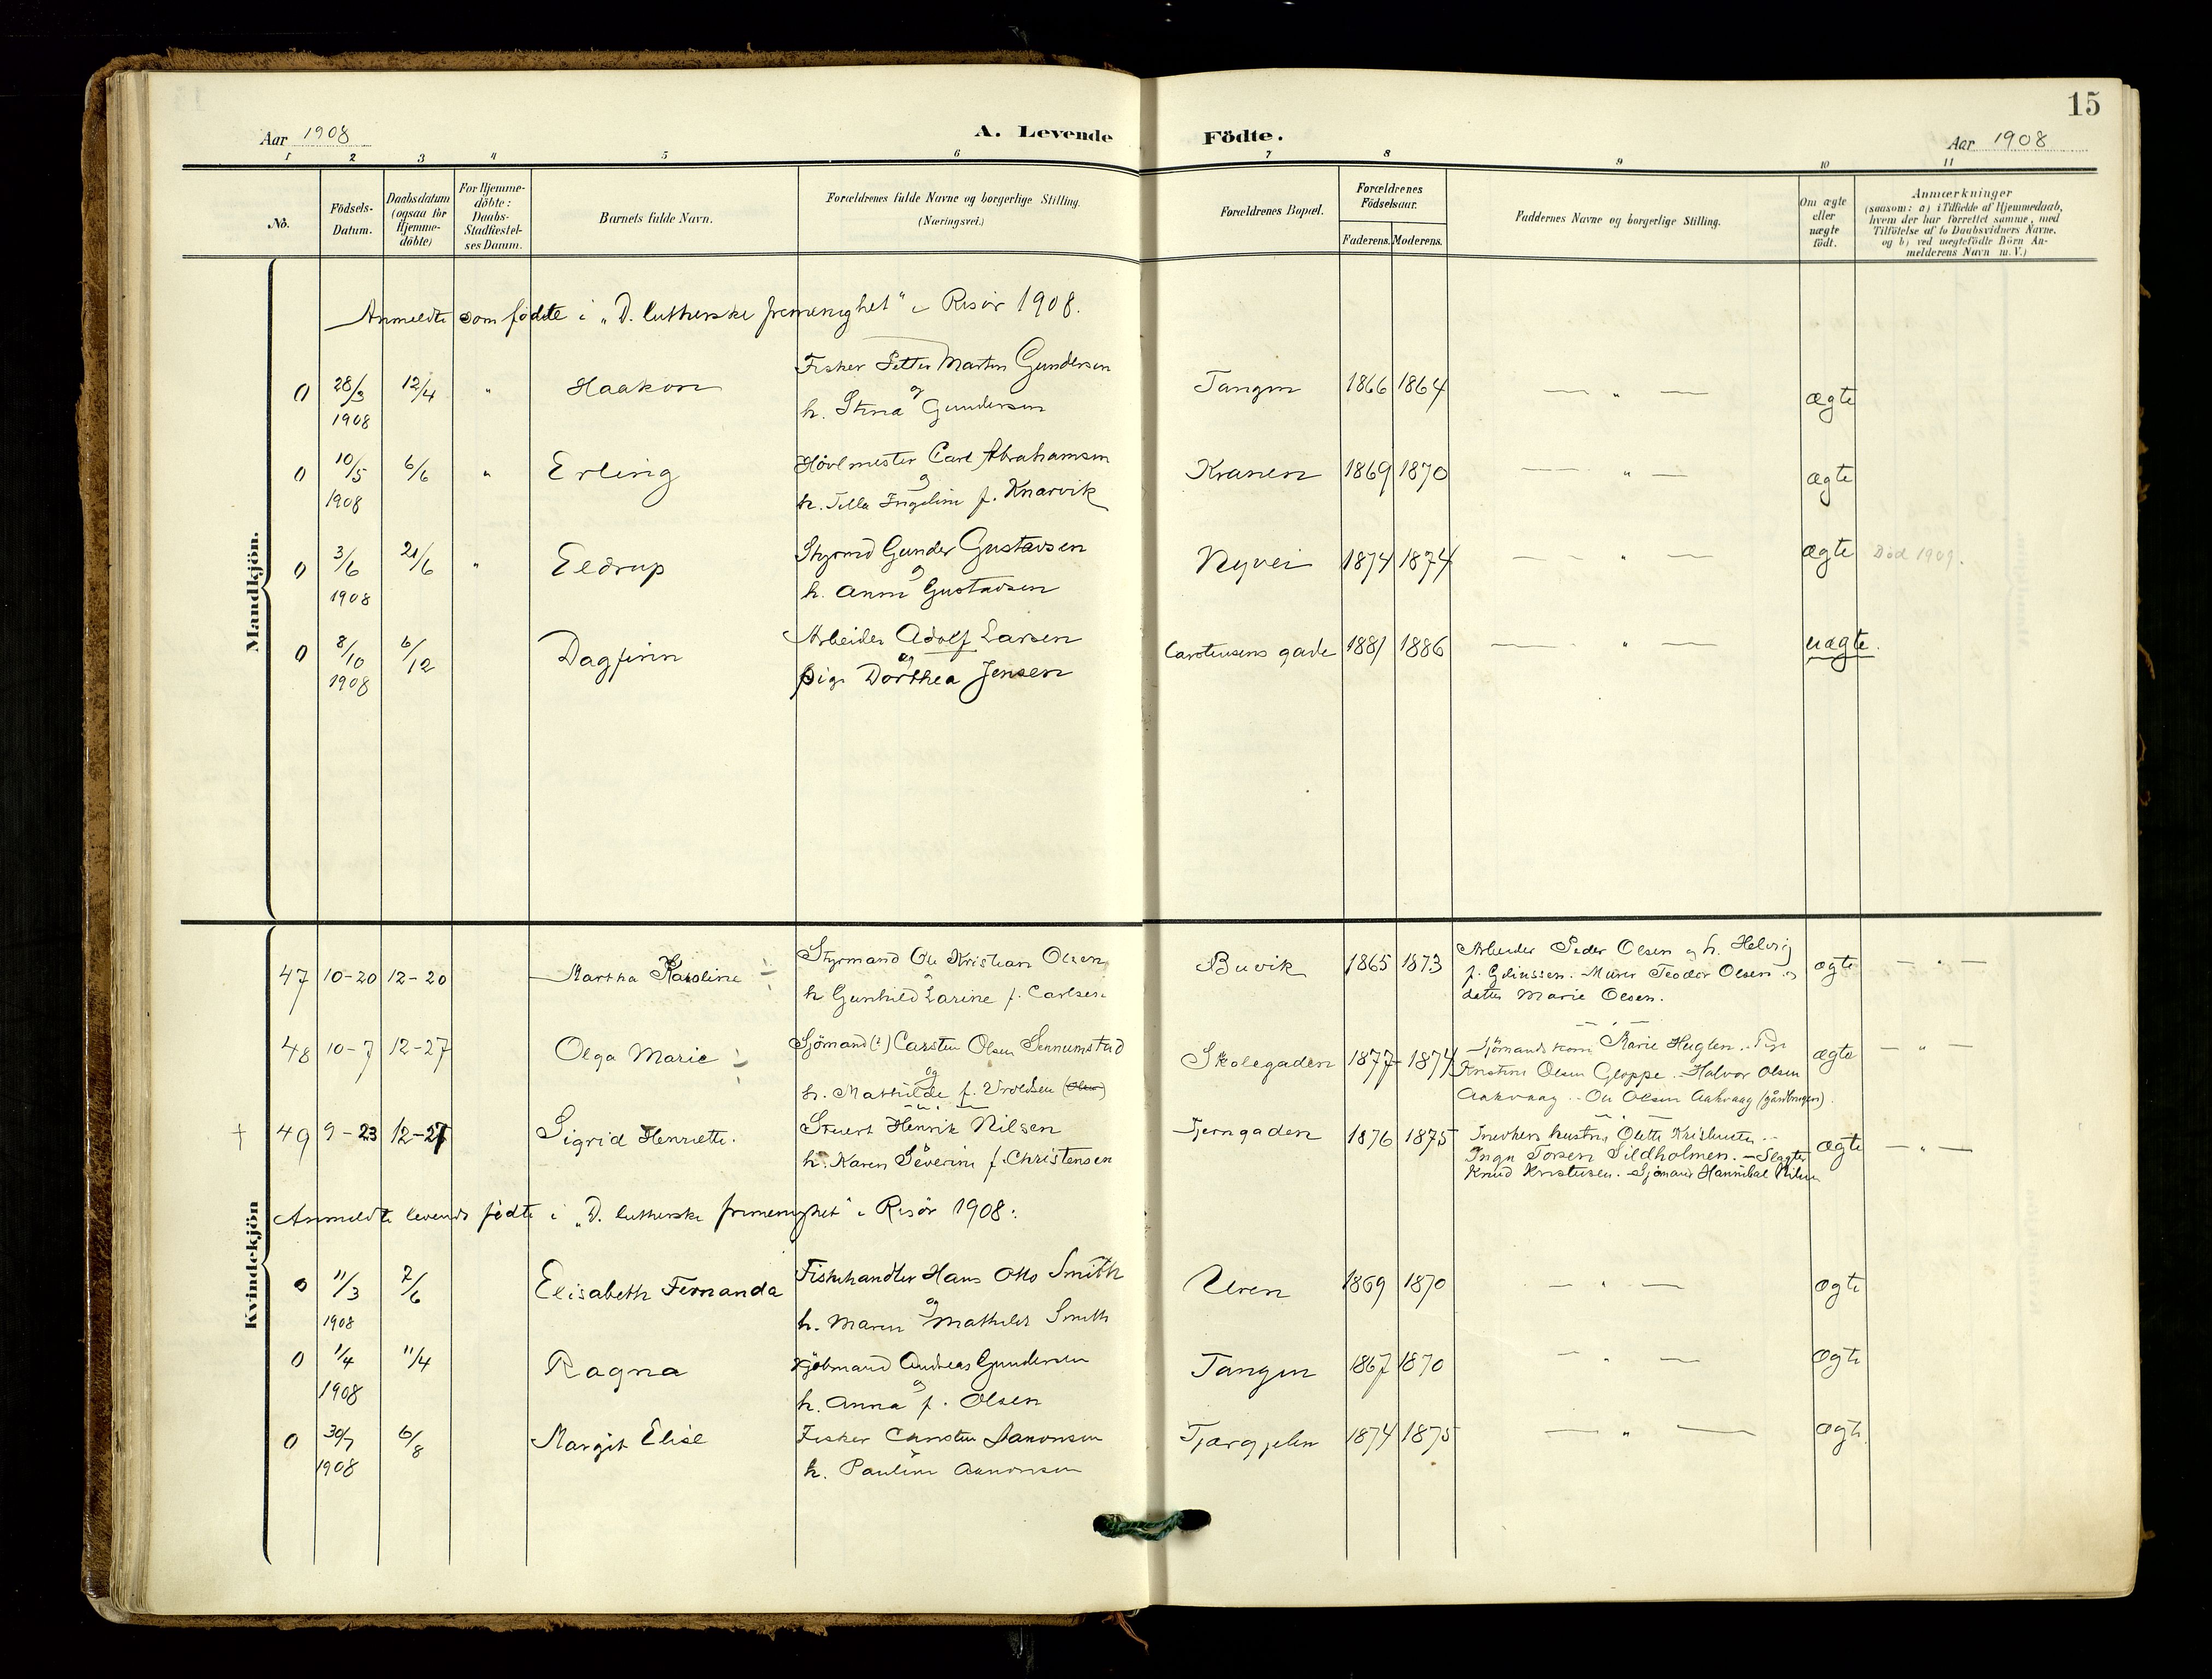 15
Aar 1908
A. Levende Födte.
Aar 1908
1 2 3 4 5 6 7 8 9 10 11
No.
Födsels-Datum.
Daabsdatum (ogsaa for Hjemme-döbte)
For Hjemme-döbte: Daabs-Stadfæstel-ses Datum.
Barnets fulde Navn.
Forældrenes fulde Navne og borgerlige Stilling. (Næringsvei.)
Forældrenes Bopæl.
Forældrenes Födselsaar.
Faderens. Moderens.
Faddernes Navne og borgerlige Stilling.
Om ægte eller uægte födt.
Anmærkninger
(saasom: a) i Tilfælde af Hjemmedaab,
hvem der har forrettet samme, med
Tilföielse af to Daabsvidners Navne,
og b) ved uægtefödte Börn An-
melderens Navn m.V.)
Mandkjön.
Anmeldte som födte i "D. lutherske frimenighet" i Risör 1908.
0 28/3 12/4 " Haakon Fisker Petter Martin Gundersen Tangen 1866 1864 — " — ægte
1908 og
h. Stina Gundersen
0 10/5 6/6 " Erling Hövlmester Carl Abrahamsen Kranen 1869 1870 — " — ægte
1908 og
h. Tella Ingeline f. Knarvik
0 3/6 21/6 " Eldrup Styrmd Gunder Gustavsen Nyvei 1874 1874 — " — ægte Död 1909.
1908 og
h. Anna Gustavsen
0 8/10 6/12 Dagfinn Arbeider Adolf Larsen Carstensens gade 1881 1886 — " — uægte.
1908 og
pige Dorthea Jensen
Kvindekjön
47 10-20 12-20 Martha Karoline Styrmand Ole Kristian Olsen Buvik 1865 1873 Arbeider Peder Olsen og h. Helvig ægte — " —
og
h Gunhild Larine f. Carlsen
f. Murer Teodor Olsen og
datter Marie Olsen.
48 10-7 12-27 Olga Marie Sjömand (?) Carsten Olsen Sennumstad Skolegaden 1877 1874 Sjömandskone Marie Huglen. Pige ægte — " —
og
h. Mathilde f. Vroldsen (Olsen)
Kristine Olsen Gloppe. Halvor Olsen
Aakvaag. Ole Olsen Aakvaag (gårdbruger).
† 49 9-23 12-27 Sigrid Henriette. Stuert Henrik Nilsen Tjerngaden 1876 1875 Snedkers hustru Olette Kristensen ægte — " —
h. Karen Severine f. Christensen
Inga Torsen Sildholmen. — Slagter
Knud Kristensen. Sjömand Hannibal Nilsen
Anmeldte levende födte i "D. lutherske frimenighet" i Risör 1908:
0 11/3 7/6 Elisabeth Fernanda Fiskehandler Hans Otto Smith Uren 1869 1870 — " — ægte
1908 og
h. Maren Mathilde Smith
0 11/4 11/4 Ragna Kjöbmand Andreas Gundersen Tangen 1867 1870 — " — ægte
1908 og
h. Anna f. Olsen
0 30/7 6/8 Margit Elise Fisker Carsten Aanonsen 1874 1875 — " — ægte
1908
h. Pauline Aanonsen